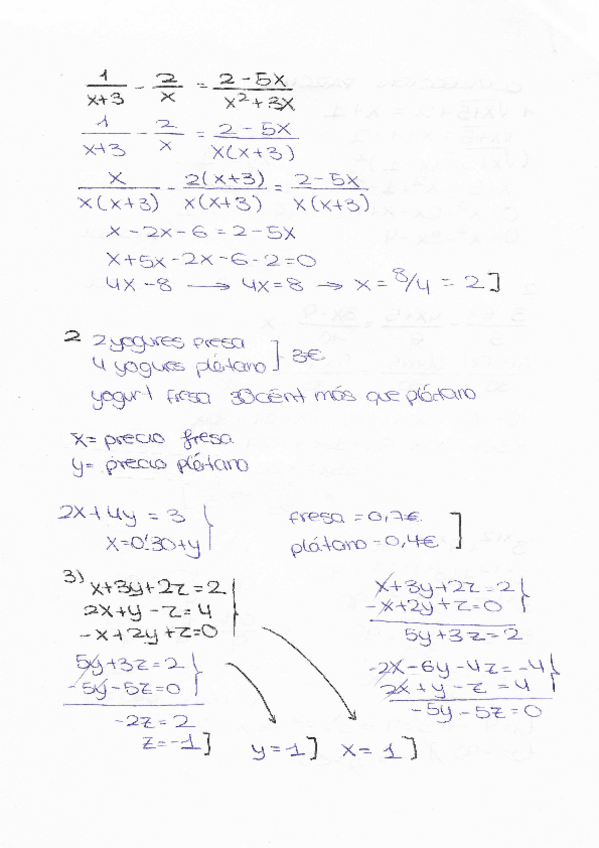 1/(x+3) - 2/x = (2-5x)/(x²+3x)
1/(x+3) - 2/x = (2-5x)/(x(x+3))
x/(x(x+3)) - 2(x+3)/(x(x+3)) = (2-5x)/(x(x+3))
x-2x-6=2-5x
x+5x-2x-6-2=0
4x-8 → 4x=8 → x=8/4=2]
2 2 yogures fresa
4 yogures plátano ] 3€
yogurt fresa 30cént más que plátano
x= precio fresa
y= precio plátano
2x+4y=3 fresa=0,7€
x=0'30+y plátano=0,4€ ]
3) x+3y+2z=2
2x+y-z=4
-x+2y+z=0
x+3y+2z=2
-x+2y+z=0
5y+3z=2
5y+3z=2
-5y-5z=0
-2z=2
z=-1]
-2x-6y-4z=-4
2x+y-z=4
-5y-5z=0
y=1] x=1]